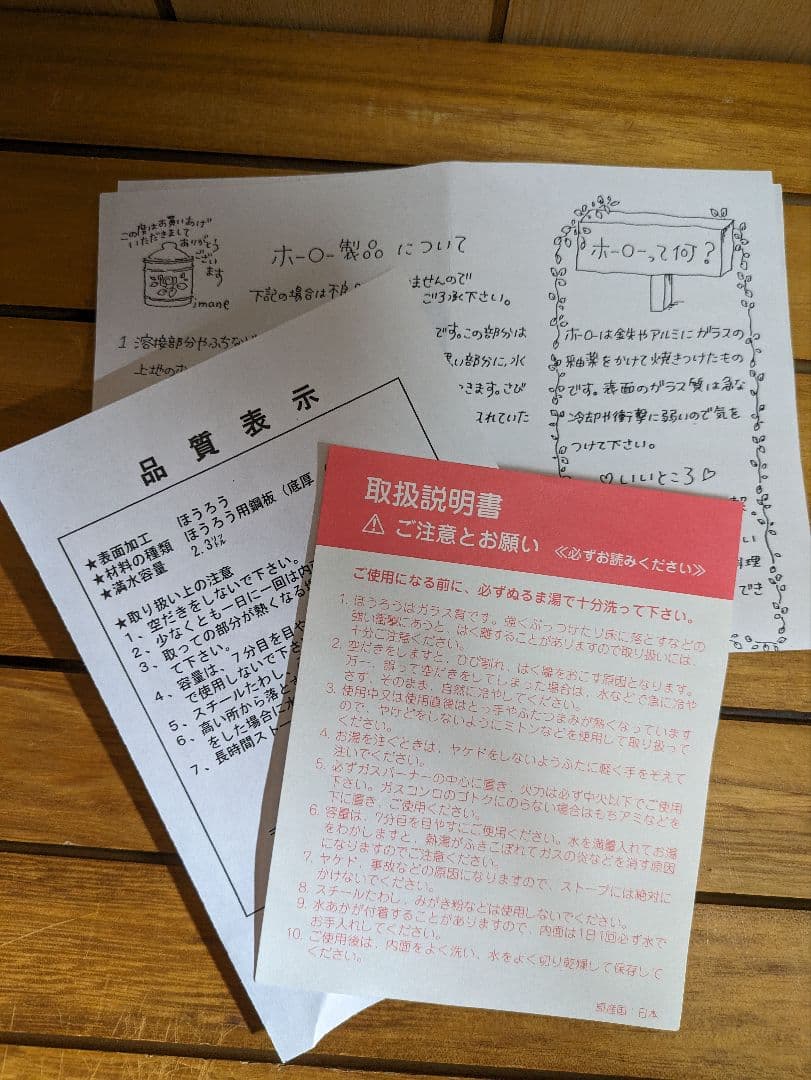 この度はお買いあげ
いただきまして
ありがとう
ございます
imane
ホーロー製品について
下記の場合は不良
ませんので
ご了承下さい。
1 溶接部分やふちなど
です。この部分は
い部分に、水
きます。さび
入れていた
ホーローって何?
ホーローは金失やアルミにガラスの
釉薬をかけて焼きつけたもの
です。表面のガラス質は急な
冷却や衝撃に弱いので気を
つけて下さい。
♡いいところ♡
い
理
でき
品質表示
★表面加工 ほうろう
★材料の種類 ほうろう用鋼板(底厚
★満水容量 2.3㍑
★取り扱い上の注意
1、空だきをしないで下さい。
2、少なくとも一日に一回は内
3、取っての部分が熱くなる
て下さい。
4、容量は、7分目を目や
で使用しないで下さ
5、スチールたわし、
6、高い所から落と
をした場合に
7、長時間ストー
取扱説明書
⚠ ご注意とお願い ≪必ずお読みください≫
ご使用になる前に、必ずぬるま湯で十分洗って下さい。
1. ほうろうはガラス質です。強くぶっつけたり床に落とすなどの
強い衝撃にあうと、はく離することがありますので取り扱いには、
十分ご注意ください。
2. 空だきをしますと、ひび割れ、はく離をおこす原因となります。
万一、誤って空だきをしてしまった場合は、水などで急に冷や
さず、そのまま、自然に冷やしてください。
3. 使用中又は使用直後はとっ手やふたつまみが熱くなっています
ので、やけどをしないようにミトンなどを使用して取り扱って
ください。
4. お湯を注ぐときは、ヤケドをしないようふたに軽く手をそえて
注いでください。
5. 必ずガスバーナーの中心に置き、火力は必ず中火以下でご使用
下さい。ガスコンロのゴトクにのらない場合はもちアミなどを
下に置き、ご使用ください。
6. 容量は、7分目を目やすにご使用ください。水を満量入れてお湯
をわかしますと、熱湯がふきこぼれてガスの炎などを消す原因
になりますのでご注意ください。
7. ヤケド、事故などの原因になりますので、ストーブには絶対に
かけないでください。
8. スチールたわし、みがき粉などは使用しないでください。
9. 水あかが付着することがありますので、内面は1日1回必ず水で
お手入れしてください。
10. ご使用後は、内面をよく洗い、水をよく切り乾燥して保存して
ください。
原産国:日本